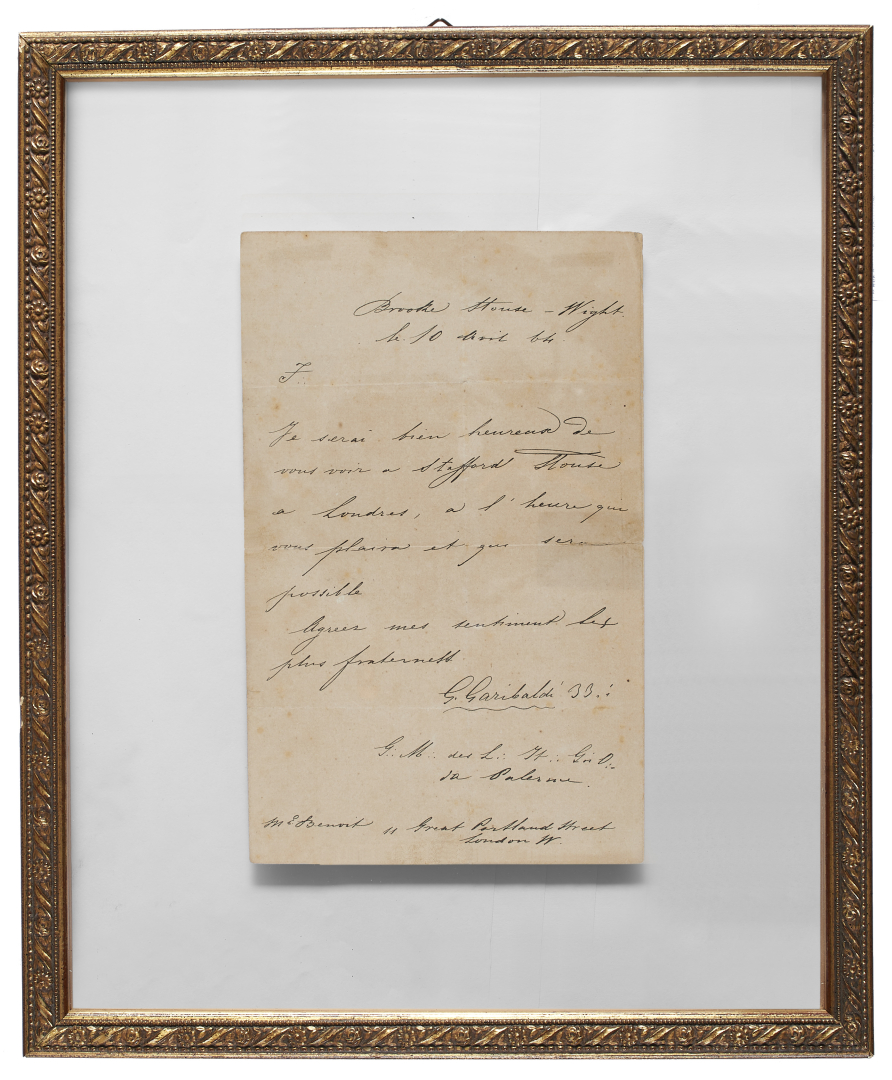 Brooke House – Wight.
le 10 Avril 64.
F∴
Je serai bien heureux de
vous voir a Stafford House
a Londres, a l'heure que
vous plaira et que sera
possible
Agreez mes sentiment les
plus fraternells
G. Garibaldi 33∴
G∴ M∴ des L∴ It∴ G∴ O∴
da Palerme.
Mr Benoit 11 Great Portland Street
London W.